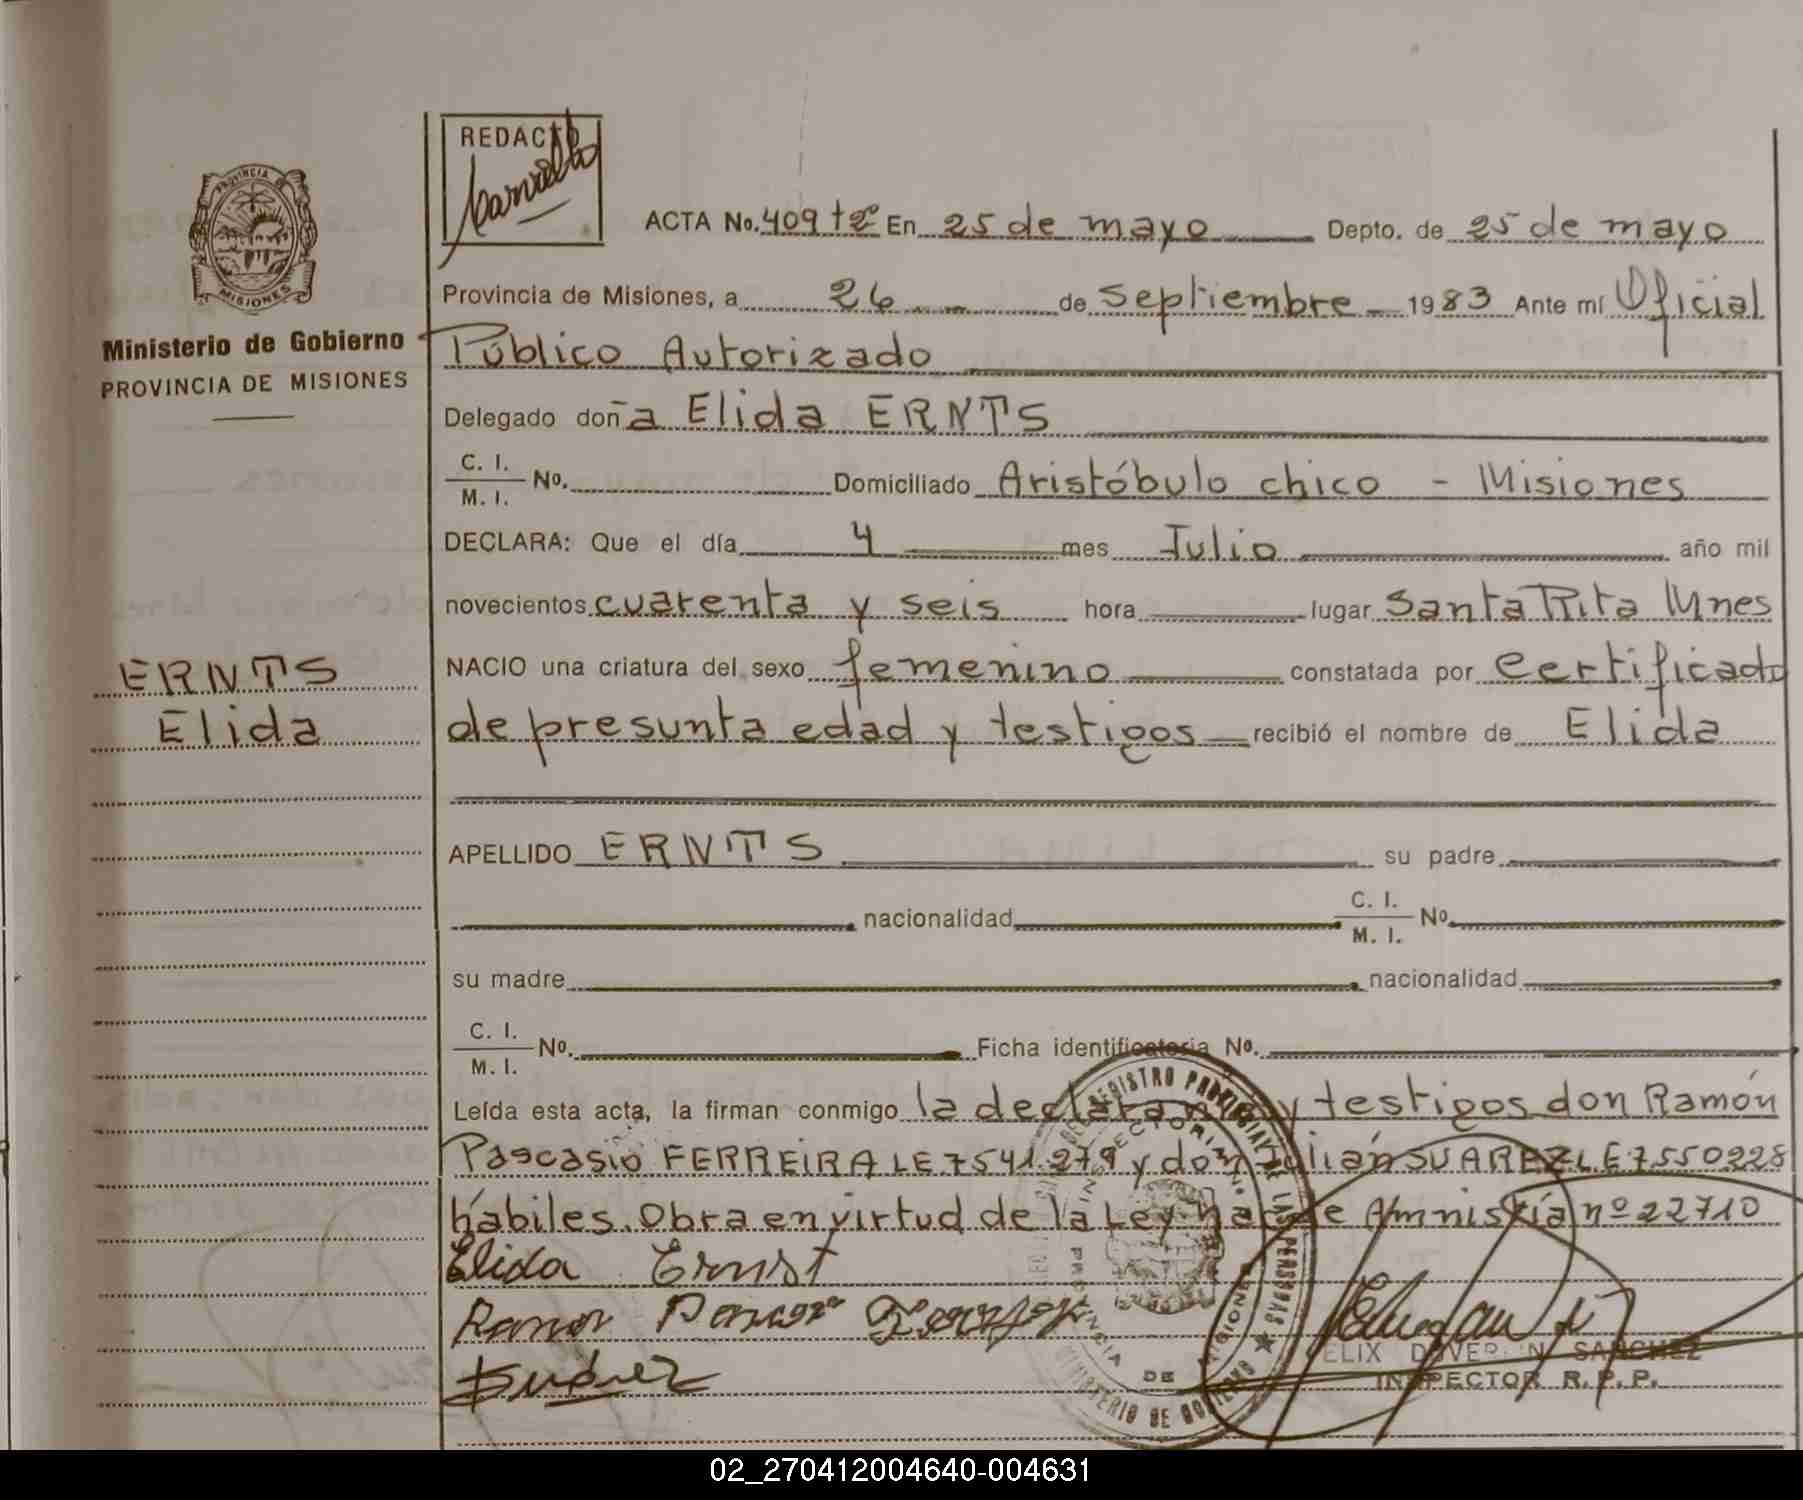 REDACTO
Carvallo
ACTA No. 409 tº 2º En 25 de mayo Depto. de 25 de mayo
PROVINCIA DE
MISIONES
Provincia de Misiones, a 26 de Septiembre 1983 Ante mí Oficial
Ministerio de Gobierno
PROVINCIA DE MISIONES
Público Autorizado
Delegado doña Elida ERNTS
C. I.
M. I. No. Domiciliado Aristóbulo chico - Misiones
DECLARA: Que el día 4 mes Julio año mil
novecientos cuarenta y seis hora lugar Santa Rita Mnes
ERNTS
Elida
NACIO una criatura del sexo femenino constatada por certificado
de presunta edad y testigos recibió el nombre de Elida
APELLIDO ERNTS su padre
nacionalidad C. I.
M. I. No.
su madre nacionalidad
C. I.
M. I. No. Ficha identificatoria No.
Leída esta acta, la firman conmigo la declarante y testigos don Ramón
Pascasio FERREIRA LE 7541279 y don Julián SUAREZ LE 7550228
hábiles. Obra en virtud de la Ley Nac de Amnistía nº 22710
Elida Ernst
Ramon
Suárez
REGISTRO PROVINCIAL DE LAS PERSONAS
MINISTERIO DE GOBIERNO
PROVINCIA DE MISIONES
FELIX SANCHEZ
INSPECTOR R. P. P.
02_270412004640-004631